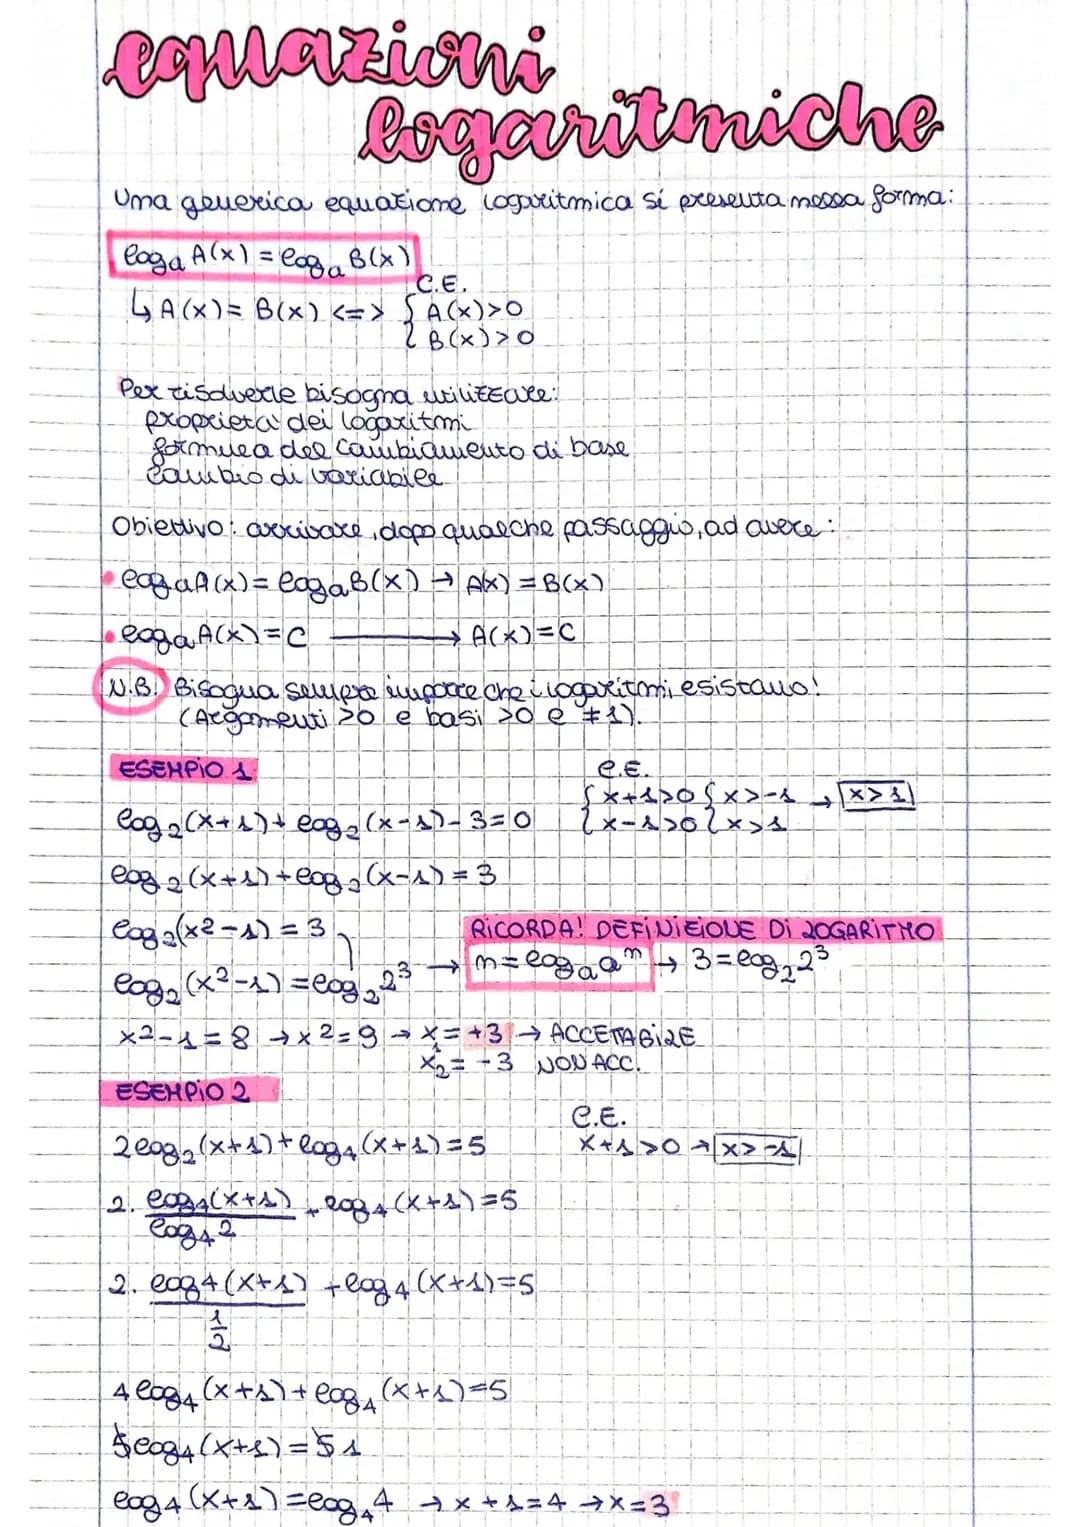 equazioni
logaritmiche
Una generica equazione logaritmica si presenta nella forma:
logₐ A(x) = logₐ B(x)
C.E.
↳ A(x) = B(x) <=> { A(x)>0
{ B(x)>0
Per risolverle bisogna utilizzare:
proprietà dei logaritmi
formula del cambiamento di base
cambio di variabile
Obiettivo: arrivare, dopo qualche passaggio, ad avere:
• logₐ A(x) = logₐ B(x) → A(x) = B(x)
• logₐ A(x) = C → A(x) = C
N.B. Bisogna sempre imporre che i logaritmi esistano!
(Argomenti >0 e basi >0 e ≠1).
ESEMPIO 1
C.E.
{ x+1>0 { x>-1 → x>1
log₂(x+1) + log₂(x-1) - 3 = 0 { x-1>0 { x>1
log₂(x+1) + log₂(x-1) = 3
log₂(x2-1) = 3 RICORDA! DEFINIZIONE DI LOGARITMO
log₂(x²-1) = log₂ 2³ → n = logₐ aⁿ → 3 = log₂ 2³
x²-1 = 8 → x² = 9 → x₁ = +3 → ACCETABILE
x₂ = -3 NON ACC.
ESEMPIO 2
C.E.
2log₂(x+1) + log₄(x+1) = 5 x+1>0 → x>-1
2. log₄(x+1) + log₄(x+1) = 5
log₄ 2
2. log4(x+1) + log₄(x+1) = 5
1
2
4log₄(x+1) + log₄(x+1) = 5
5log₄(x+1) = 5 1
log₄(x+1) = log₄ 4 → x+1 = 4 → x = 3